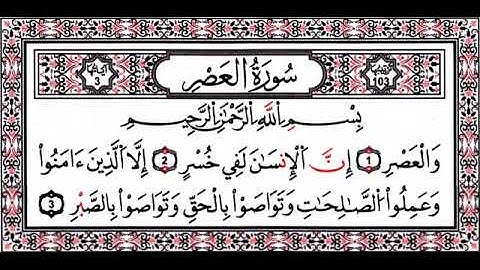 ترتيبها 103 سُورَةُ الْعَصْرِ آياتها 3
بِسْمِ اللَّهِ الرَّحْمَٰنِ الرَّحِيمِ
وَالْعَصْرِ 1 إِنَّ ٱلْإِنسَانَ لَفِي خُسْرٍ 2 إِلَّا ٱلَّذِينَ ءَامَنُوا۟
وَعَمِلُوا۟ ٱلصَّالِحَاتِ وَتَوَاصَوْا۟ بِالْحَقِّ وَتَوَاصَوْا۟ بِالصَّبْرِ 3